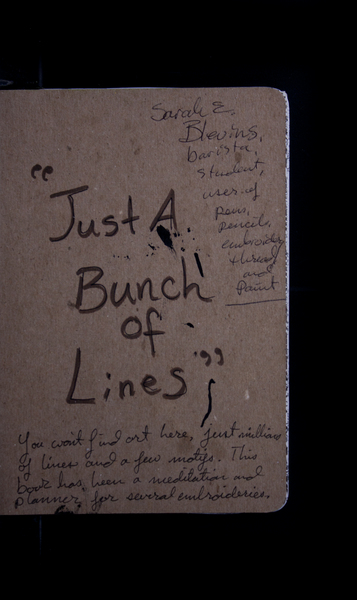 Sarah E.
Blevins,
barista,
student,
user of
pens,
pencils,
embroidery
thread
and
Paint
"Just A
Bunch
of
Lines"
You won't find art here, just millions
of lines and a few motifs. This
book has been a meditation and
planner for several embroideries.